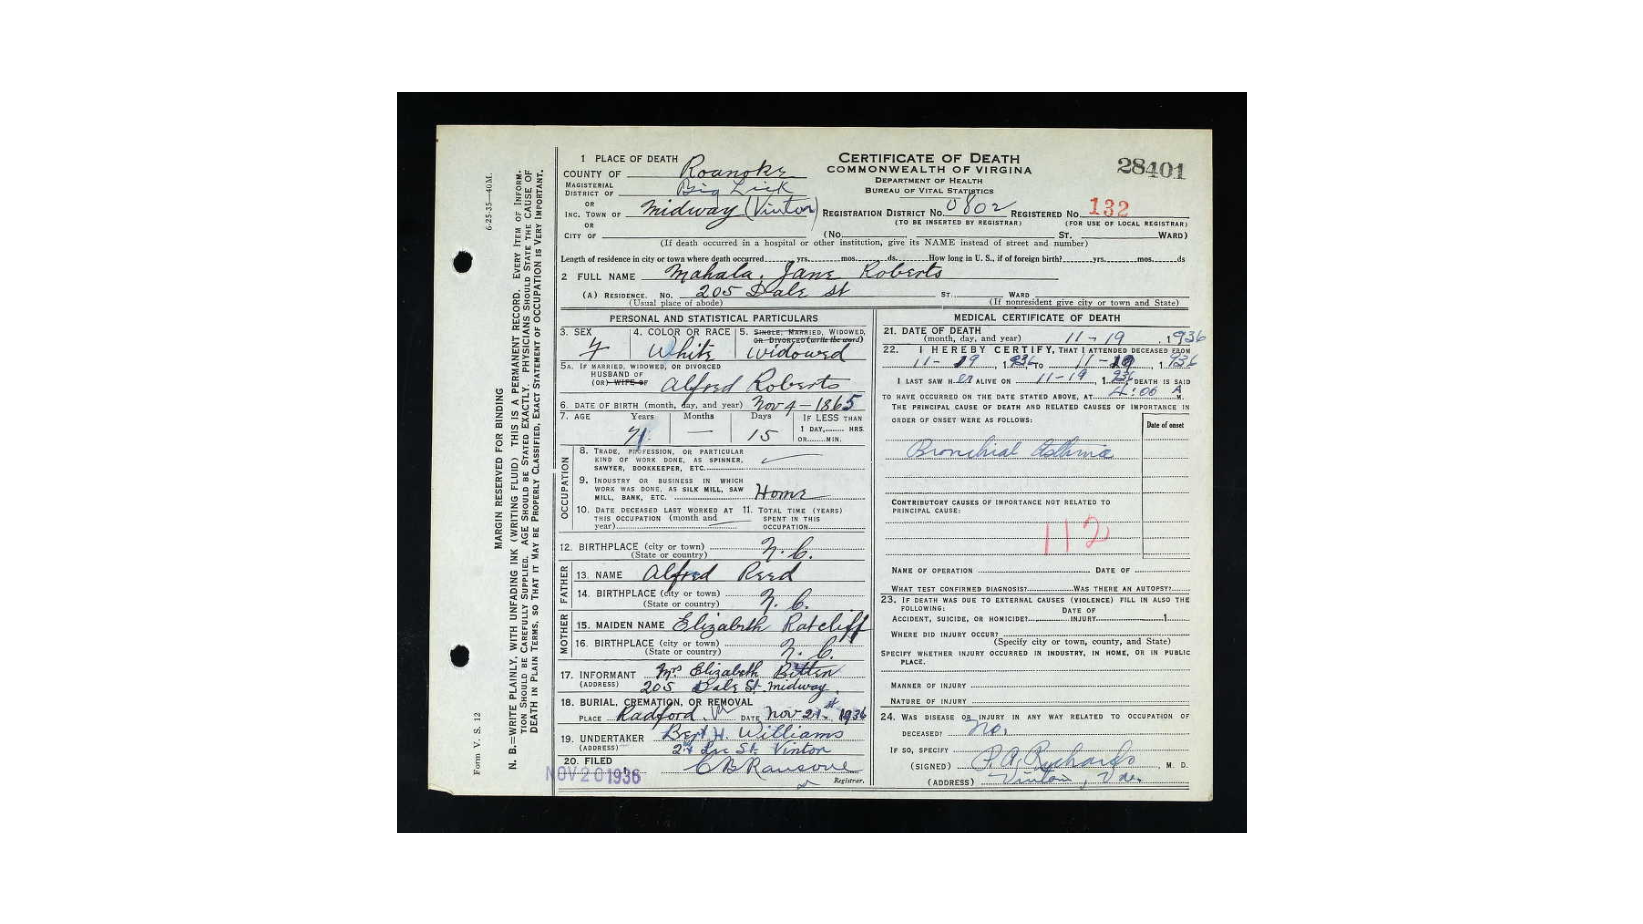 CERTIFICATE OF DEATH
COMMONWEALTH OF VIRGINIA
DEPARTMENT OF HEALTH
BUREAU OF VITAL STATISTICS
28401
1 PLACE OF DEATH
COUNTY OF Roanoke
MAGISTERIAL DISTRICT OF Big Lick
OR
INC. TOWN OF Midway (Vinton)
REGISTRATION DISTRICT No. 0802 REGISTERED No. 132
(TO BE INSERTED BY REGISTRAR) (FOR USE OF LOCAL REGISTRAR)
OR
CITY OF (No. ST. WARD)
(If death occurred in a hospital or other institution, give its NAME instead of street and number)
Length of residence in city or town where death occurred yrs. mos. ds. How long in U. S., if of foreign birth? yrs. mos. ds
2 FULL NAME Mahala Jane Roberts
(A) RESIDENCE. No. 205 Dale St ST. WARD
(Usual place of abode) (If nonresident give city or town and State)
PERSONAL AND STATISTICAL PARTICULARS
3. SEX 4. COLOR OR RACE 5. SINGLE, MARRIED, WIDOWED,
OR DIVORCED (write the word)
F White Widowed
5A. IF MARRIED, WIDOWED, OR DIVORCED
HUSBAND OF
(OR) WIFE OF Alfred Roberts
6. DATE OF BIRTH (month, day, and year) Nov 4 - 1865
7. AGE Years Months Days IF LESS THAN
1 DAY, HRS.
OR MIN.
71 — 15
OCCUPATION
8. TRADE, PROFESSION, OR PARTICULAR
KIND OF WORK DONE, AS SPINNER,
SAWYER, BOOKKEEPER, ETC.
9. INDUSTRY OR BUSINESS IN WHICH
WORK WAS DONE, AS SILK MILL, SAW
MILL, BANK, ETC. Home
10. DATE DECEASED LAST WORKED AT
THIS OCCUPATION (month and
year)
11. TOTAL TIME (YEARS)
SPENT IN THIS
OCCUPATION
12. BIRTHPLACE (city or town)
(State or country) N. C.
FATHER
13. NAME Alfred Reed
14. BIRTHPLACE (city or town)
(State or country) N. C.
MOTHER
15. MAIDEN NAME Elizabeth Ratcliff
16. BIRTHPLACE (city or town)
(State or country) N. C.
17. INFORMANT Mrs Elizabeth
(ADDRESS) 205 Dale St. Midway.
18. BURIAL, CREMATION, OR REMOVAL
PLACE Radford, Va DATE Nov 21st 1936
19. UNDERTAKER Bert H. Williams
(ADDRESS) Lee St. Vinton
20. FILED
NOV 20 1936 C B Ransone
Registrar.
MEDICAL CERTIFICATE OF DEATH
21. DATE OF DEATH
(month, day, and year) 11-19, 1936
22. I HEREBY CERTIFY, THAT I ATTENDED DECEASED FROM
11-19, 1936 TO 11-19 1936
I LAST SAW HER ALIVE ON 11-19 1936 DEATH IS SAID
TO HAVE OCCURRED ON THE DATE STATED ABOVE, AT 4:00 A M.
THE PRINCIPAL CAUSE OF DEATH AND RELATED CAUSES OF IMPORTANCE IN
ORDER OF ONSET WERE AS FOLLOWS:
Date of onset
Bronchial Asthma
CONTRIBUTORY CAUSES OF IMPORTANCE NOT RELATED TO
PRINCIPAL CAUSE:
112
NAME OF OPERATION DATE OF
WHAT TEST CONFIRMED DIAGNOSIS? WAS THERE AN AUTOPSY?
23. IF DEATH WAS DUE TO EXTERNAL CAUSES (VIOLENCE) FILL IN ALSO THE
FOLLOWING: DATE OF
ACCIDENT, SUICIDE, OR HOMICIDE? INJURY 1
WHERE DID INJURY OCCUR?
(Specify city or town, county, and State)
SPECIFY WHETHER INJURY OCCURRED IN INDUSTRY, IN HOME, OR IN PUBLIC
PLACE.
MANNER OF INJURY
NATURE OF INJURY
24. WAS DISEASE OR INJURY IN ANY WAY RELATED TO OCCUPATION OF
DECEASED? No.
IF SO, SPECIFY
(SIGNED) M. D.
(ADDRESS) Vinton, Va.
MARGIN RESERVED FOR BINDING
N. B.—WRITE PLAINLY, WITH UNFADING INK (WRITING FLUID) THIS IS A PERMANENT RECORD. EVERY ITEM OF INFORM-
TION SHOULD BE CAREFULLY SUPPLIED. AGE SHOULD BE STATED EXACTLY. PHYSICIANS SHOULD STATE THE CAUSE OF
DEATH IN PLAIN TERMS, SO THAT IT MAY BE PROPERLY CLASSIFIED. EXACT STATEMENT OF OCCUPATION IS VERY IMPORTANT.
Form V. S. 12
6-25-35—40M.